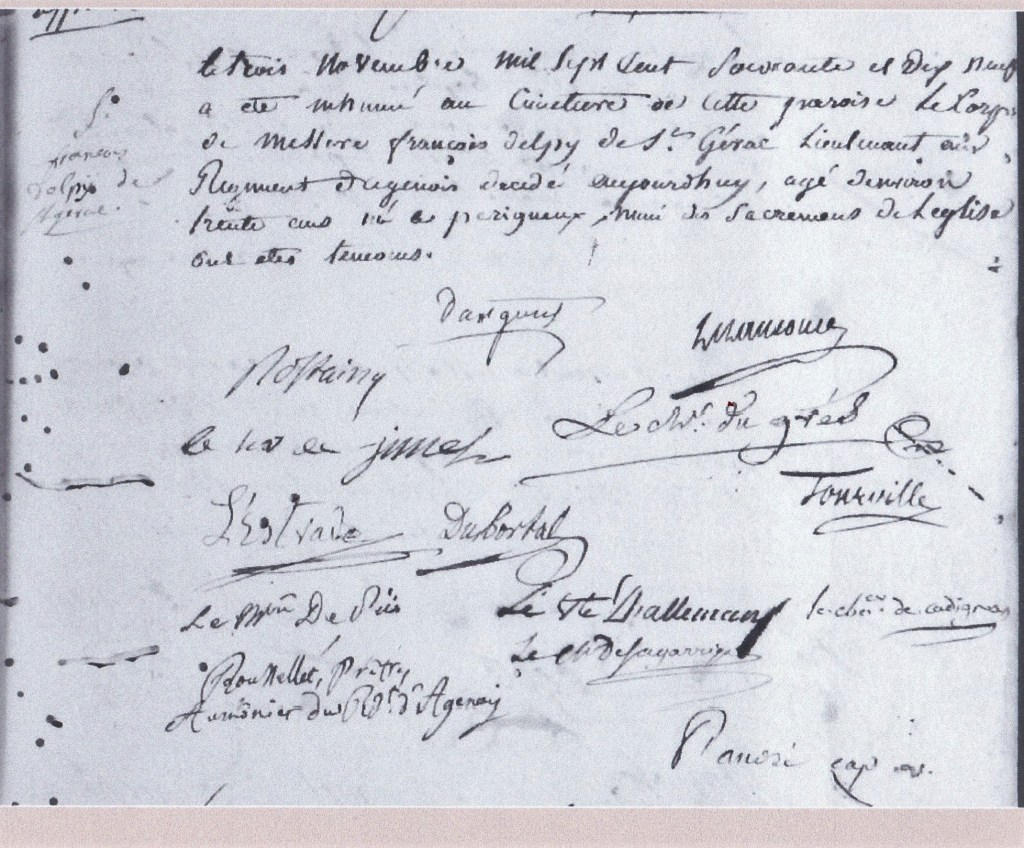 le trois Novembre mil Sept Cent Soixante et Dix Neuf
a eté inhumé au Cimetiere de Cette paroise Le Corps
de Messire françois delpy de St. Gérac Lieutenant au
Regiment dagenois decedé aujourdhuy, agé denviron
trente ans né a perigueux, muni des Sacremens de Leglise
ont etés temoins.
S.
francois
Dolpy de
Rostaing
Le chr. du grés
le de james
Tourville
L'Estrade
Duportal
Le De Piis
Le Vte D'allemans
le cher. de cadignan
Le de
Rousellet, Prêtre,
Aumônier du Rgt. d'Agenois
P. andré cap